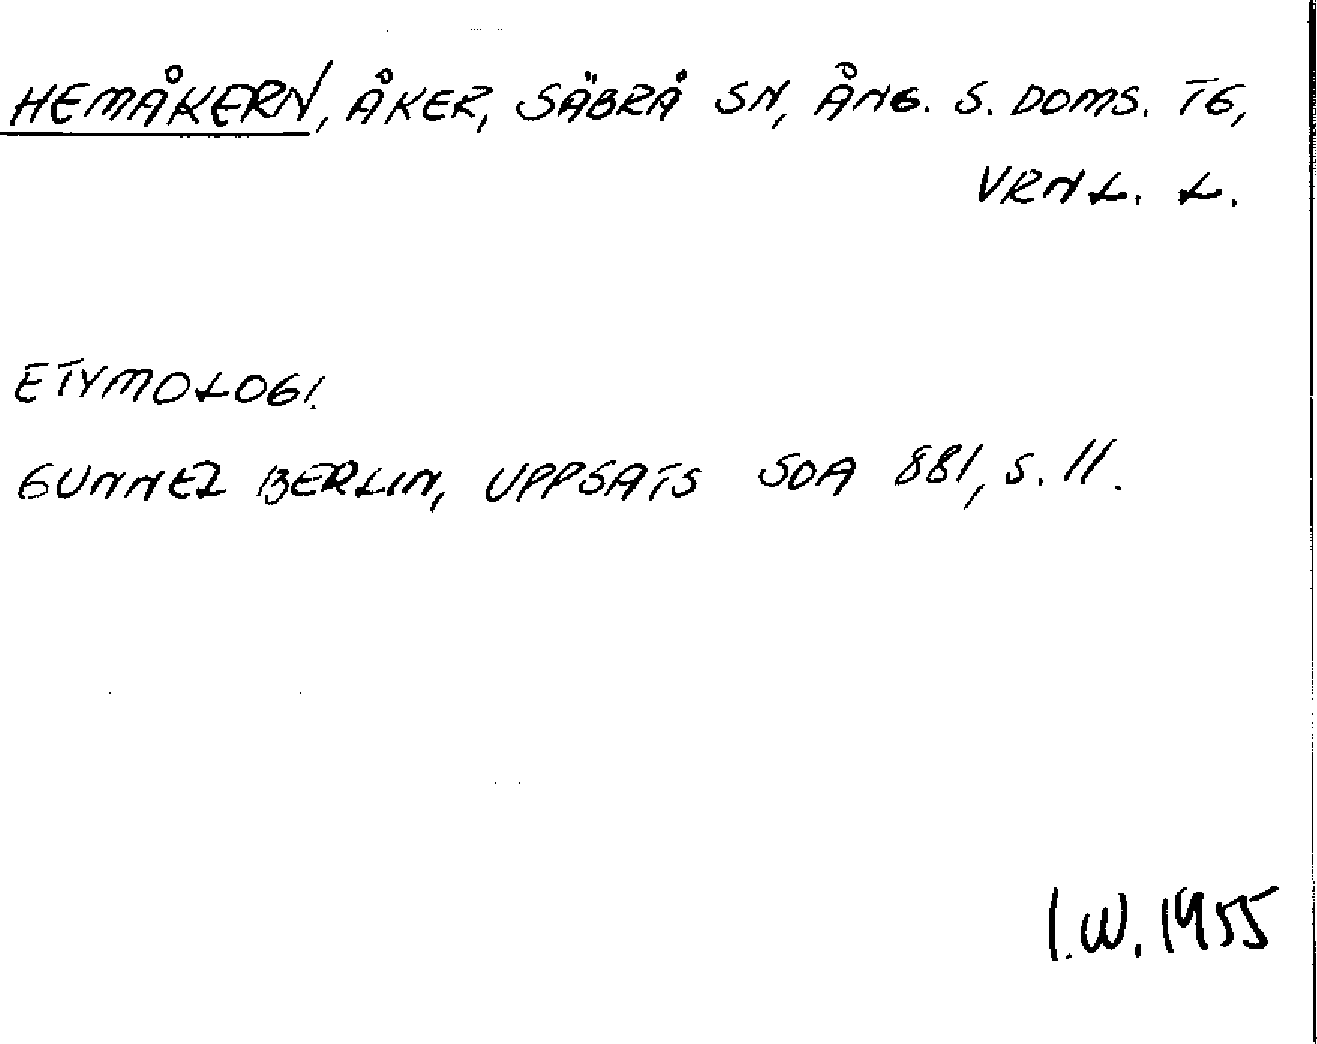 HEMÅKERN, ÅKER, SÄBRÅ SN, ÅNG. S. DOMS. TG,
VRNL. L.
ETYMOLOGI.
GUNNEL BERLIN, UPPSATS SOA 881, S. 11.
I.W. 1955